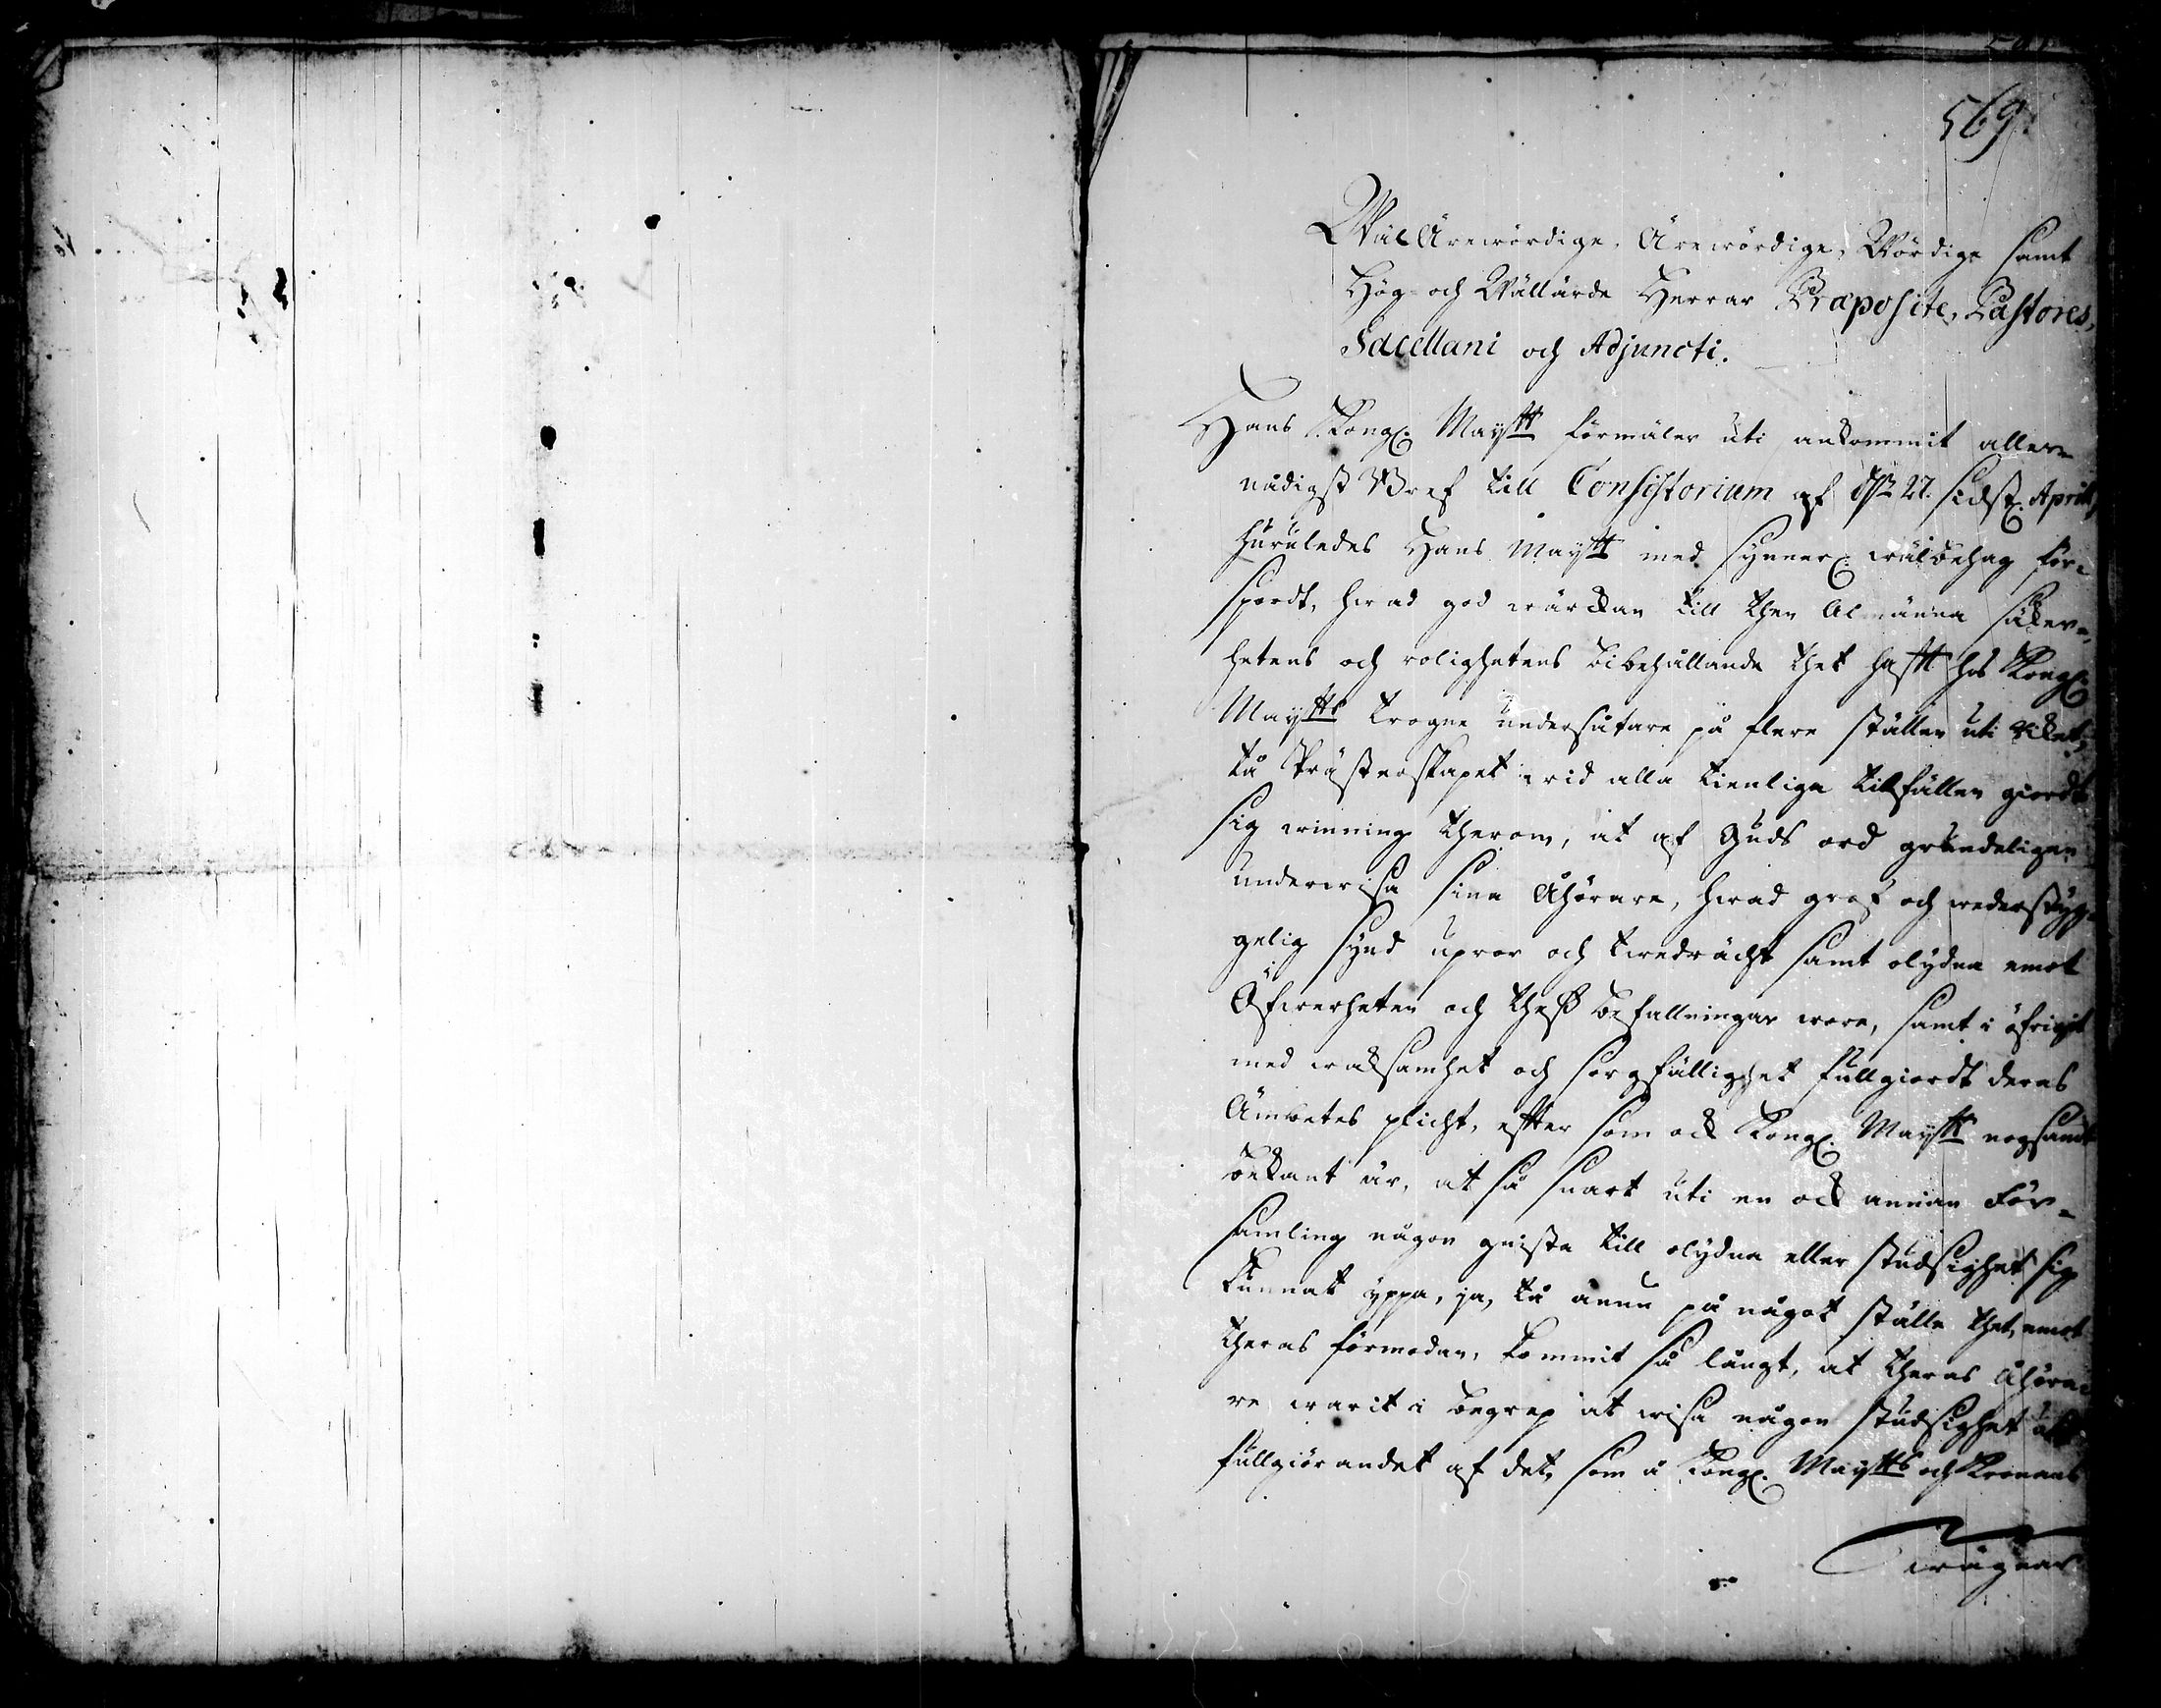 569.
WälÄrewördige, Ärewördige, Wördige samt
Hög- och Wällärde Herrar Præposite, Pastores,
Sacellani och Adjuncti.
Hans Kongl. Maytt förmäler uti ankommit aller-
nådigst Bref till Consistorium af d. 27. sidstl. April,
huruledes Hans Maytt med synnerl. wälbehag för-
spordt, hwad god wärckan till then Almänna säker-
hetens och rolighetens bibehållande thet hafft hos Kongl.
Maytts trogne undersåtare på flere ställen uti Riket,
tå Prästerskapet wid alla tienliga tillfällen giordt
sig winning therom, at af Guds ord grundeligen
underwisa sina Åhörare, hwad grof och wederstyg-
gelig synd upror och twedrächt samt olydna emot
Öfwerheten och thess befallningar wore, samt i öfrigit
med waksamhet och sorgfällighet fullgiordt deras
Ämbetes plicht, effter som ock Kongl. Maytt nogsamt
bekant är, at så snart uti en ock annan För-
samling någon gnista till olydna eller studsighet sig
kunnat yppa, ja, tå ännu på något ställe thet, emot
theras förmodan, kommit så långt, at theras Åhöra-
re warit i begrep at wisa någon studsighet
fullgiörandet af det, som å Kongl. Maytts och Kronans
wägnar